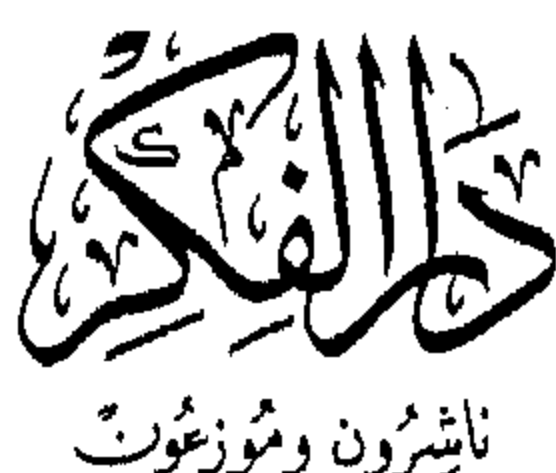 دَارُ الفِكْرِ
ناشِرُون ومُوزعُونْ